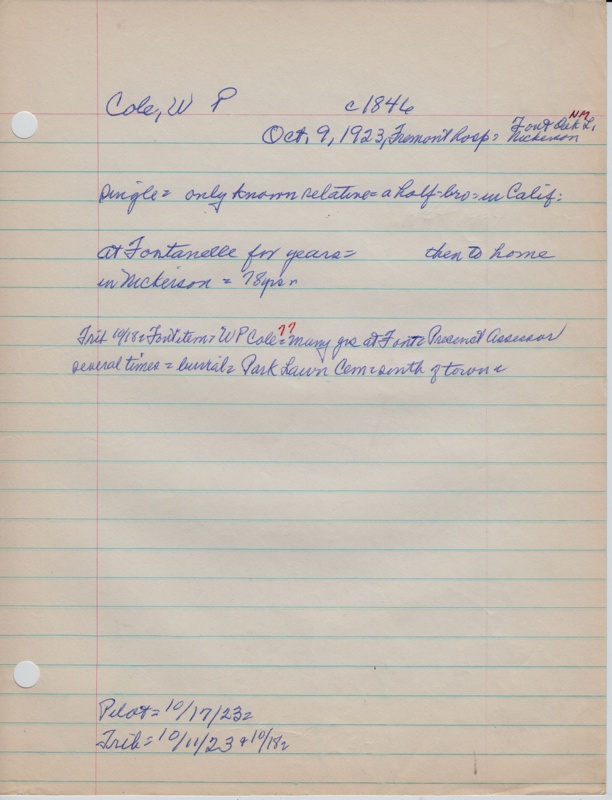 Cole, W P c1846
NM
Oct, 9, 1923, Fremont hosp = Font Oak L,
Nickerson
single = only known relative = a half-bro = in Calif =
at Fontanelle for years = then to home
in Nickerson = 78yrs =
??
Trib 10/18 = Font item = W P Cole = many yrs at Font = Precinct Assessor
several times = burial = Park Lawn Cem = south of town =
Pilot = 10/17/23 =
Trib = 10/11/23 & 10/18 =